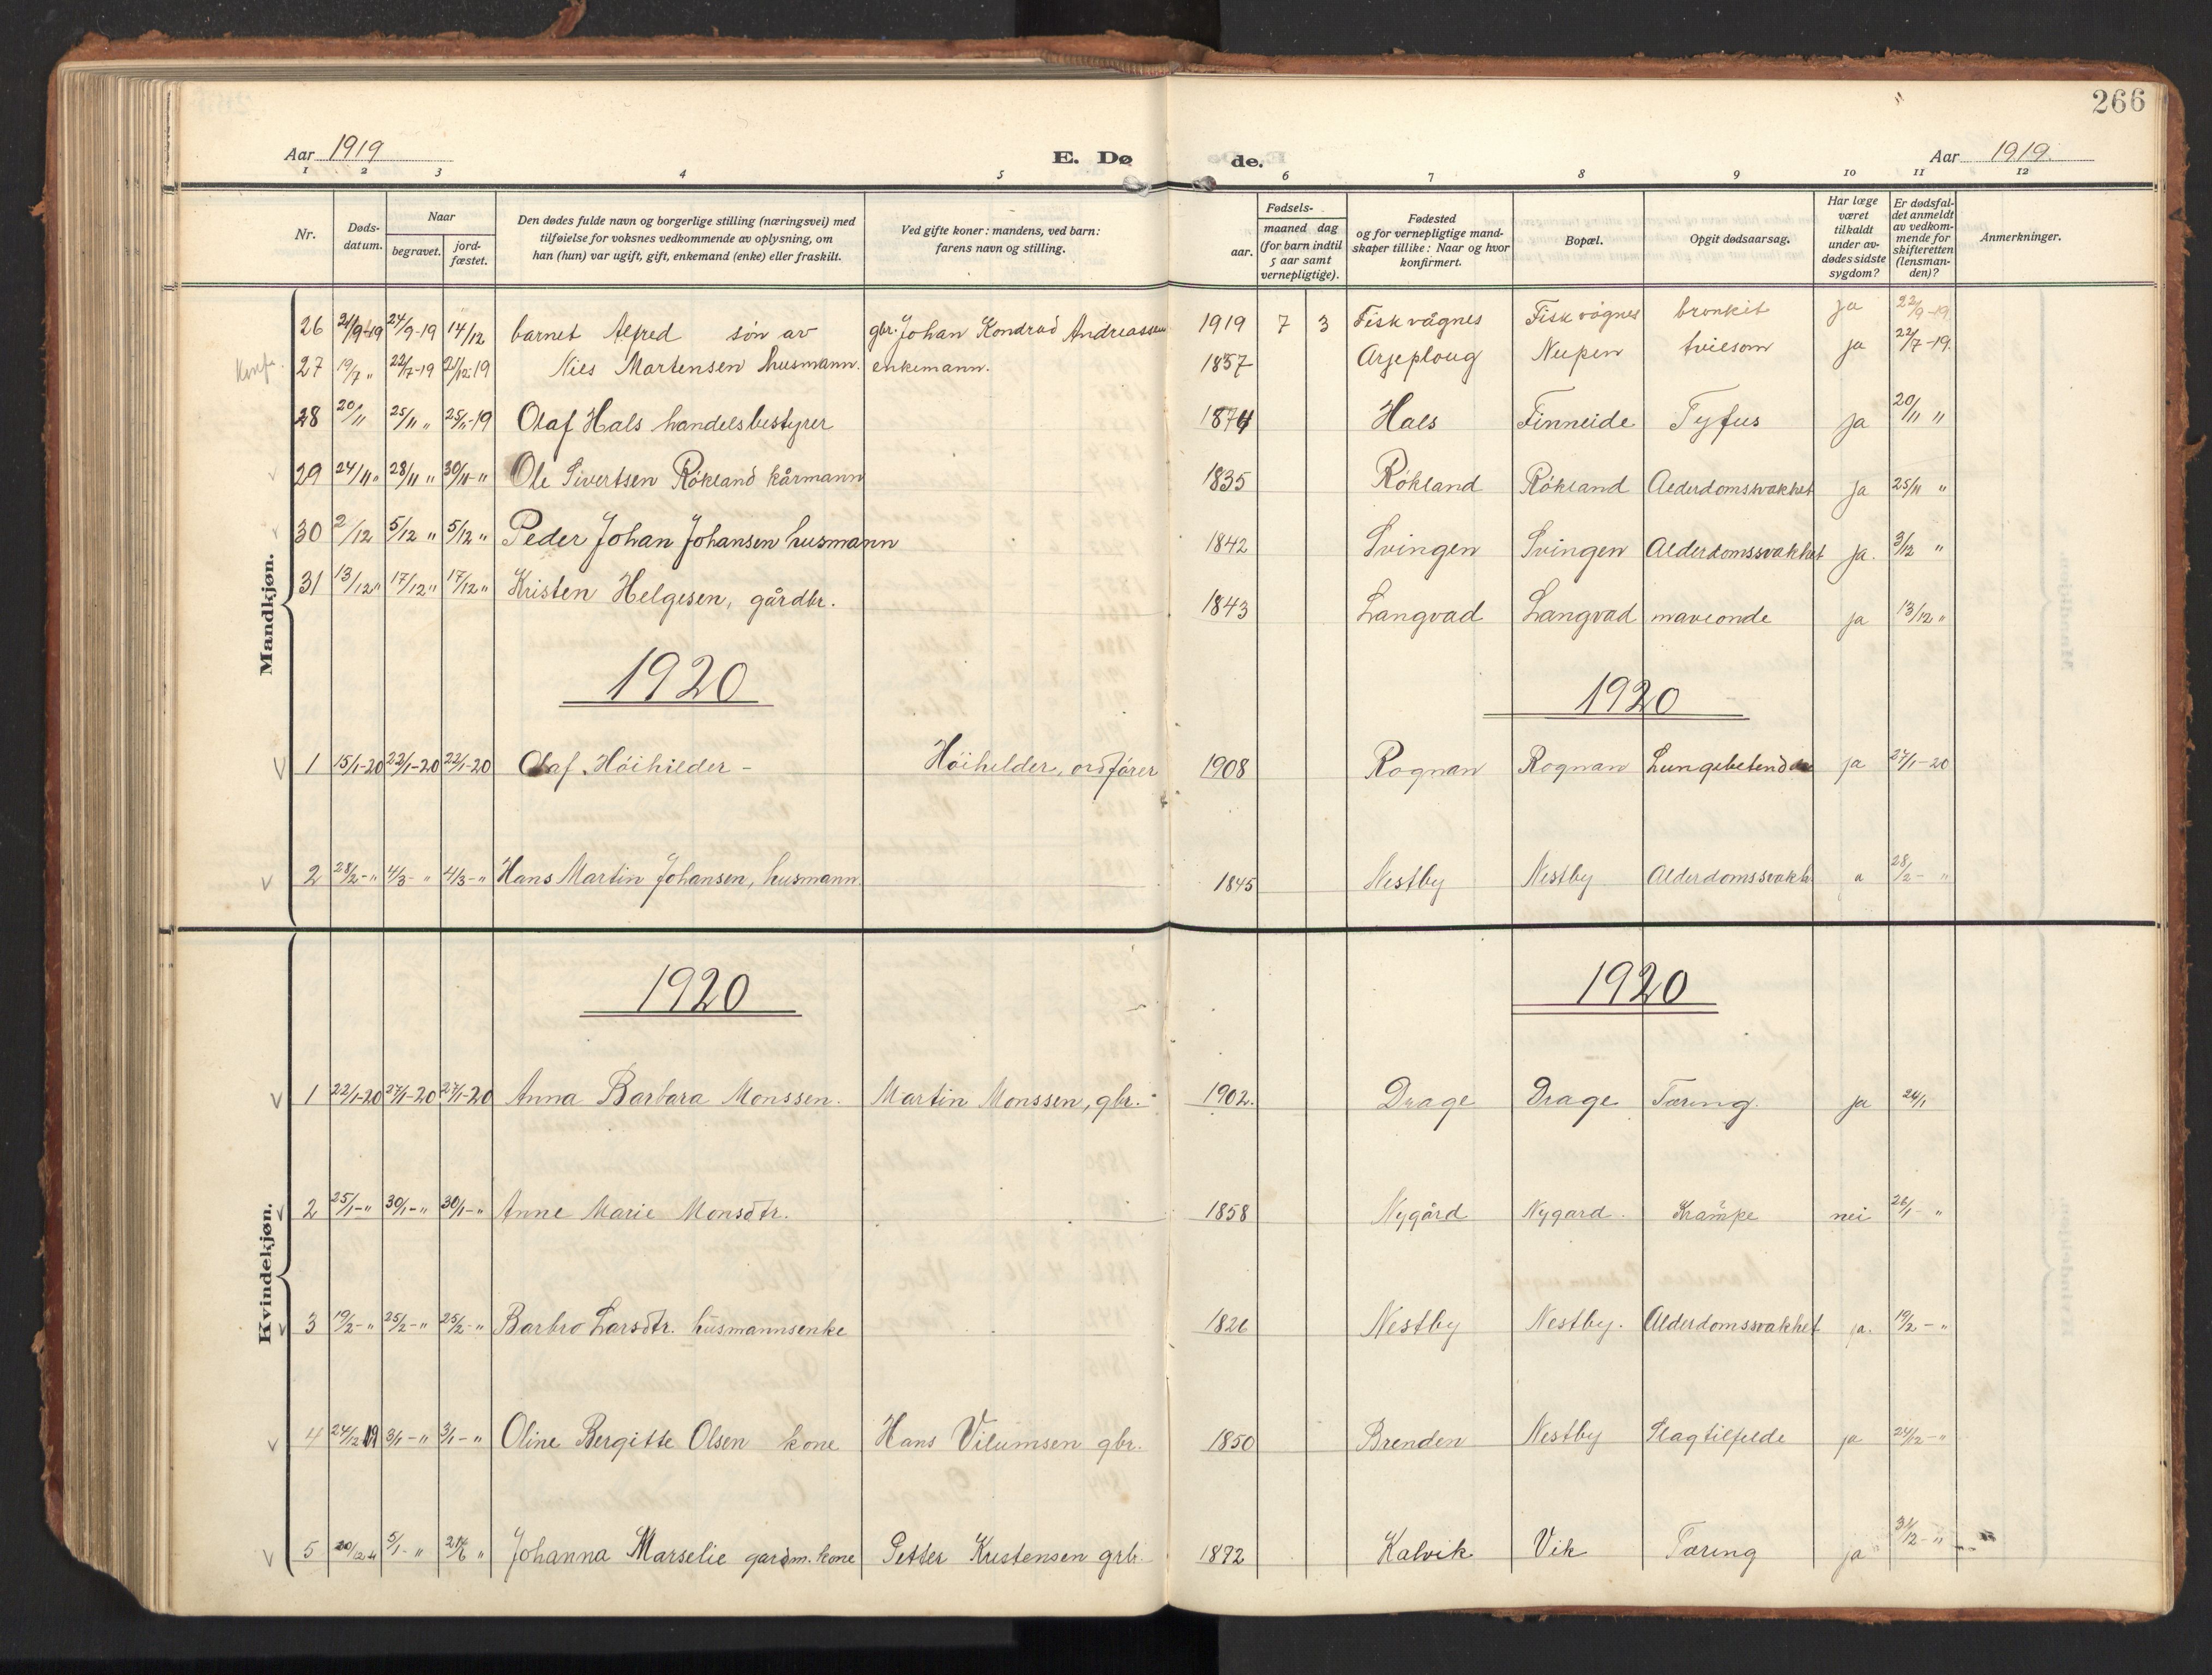 266
Aar 1919 E. Dø de. Aar 1919.
1 2 3 4 5 6 7 8 9 10 11 12
Nr. Døds-datum. Naar begravet. jord-fæstet. Den dødes fulde navn og borgerlige stilling (næringsvei) med tilføielse for voksnes vedkommende av oplysning, om han (hun) var ugift, gift, enkemand (enke) eller fraskilt. Ved gifte koner: mandens, ved barn: farens navn og stilling. Fødsels- aar. maaned dag (for barn indtil 5 aar samt vernepligtige). Fødested og for vernepligtige mand-skaper tillike: Naar og hvor konfirmert. Bopæl. Opgit dødsaarsag. Har læge været tilkaldt under av-dødes sidste sygdom? Er dødsfal-det anmeldt av vedkom-mende for skifteretten (lensman-den)? Anmerkninger.
Mandkjøn.
26 21/9-19 24/9-19 14/12 barnet Alfred søn av gbr. Johan Kondrad Andreassen 1919 7 3 Fiskvågnes Fiskvågnes bronkit ja 22/9-19
27 19/7 " 22/7-19 21/12-19 Nils Martensen husmann. enkemann. 1857 Arjeploug Nupen tvilsom ja 22/7-19.
28 20/11 25/11 " 25/11-19 Olaf Hals handelsbestyrer 1874 Hals Finneide Tyfus ja 20/11 "
29 24/11 " 28/11 " 30/11-" Ole Sivertsen Røkland kårmann 1835 Røkland Røkland Alderdomssvakhet ja 25/11 "
30 2/12 5/12 " 5/12 " Peder Johan Johansen husmann 1842 Svingen Svingen Alderdomssvakhet ja. 3/12 "
31 13/12 " 17/12 " 17/12 " Kristen Helgesen, gårdbr. 1843 Langvad Langvad maveonde ja 13/12 "
1920 1920
1 15/1-20 22/1-20 22/1-20 Olaf Höihilder - Höihilder, ordfører 1908 Rognan Rognan ja 27/1-20
2 28/2-" 4/3-" 4/3-" Hans Martin Johansen, husmann. 1845 Nestby Nestby Alderdomssvakh. " 28/2-"
Kvindekjøn.
1920 1920
1 22/1-20 27/1-20 27/1-20 Anna Barbara Monssen. Martin Monssen, gbr. 1902. Drage Drage Tæring. ja 24/1
2 25/1-" 30/1-" 30/1-" Anne Marie Monsdtr. 1858 Nygård Nygard. Krampe nei 26/1-"
3 19/2-" 25/2-" 25/2-" Barbro Larsdtr. husmannsenke 1826 Nestby Nestby. Alderdomssvakhet ja. 19/2-"
4 24/12 19 3/1-" 3/1-" Oline Bergitte Olsen kone Hans Vilumsen gbr. 1850 Brenden Nestby Slagtilfelde ja 24/12-"
5 20/12 " 5/1-" Johanna Marselie gardm. kone Petter Kristensen grbr. 1872 Kalvik Vik Tæring ja 31/12-"